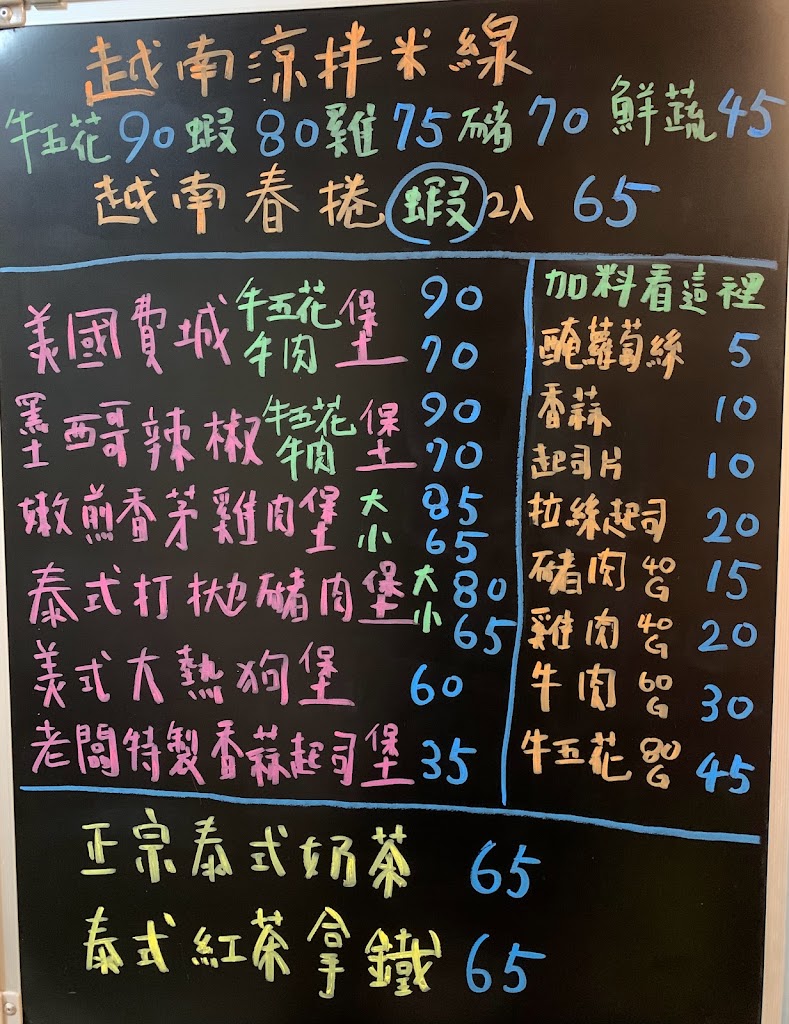 越南涼拌米線
牛五花90 蝦80 雞75 豬70 鮮蔬45
越南春捲 蝦 2入 65
美國費城 牛五花 堡 90
牛肉 70
墨西哥辣椒 牛五花 堡 90
牛肉 70
嫩煎香茅雞肉堡 大 85
小 65
泰式打拋豬肉堡 大 80
小 65
美式大熱狗堡 60
老闆特製香蒜起司堡 35
加料看這裡
醃蘿蔔絲 5
香蒜 10
起司片 10
拉絲起司 20
豬肉 40G 15
雞肉 40G 20
牛肉 60G 30
牛五花 80G 45
正宗泰式奶茶 65
泰式紅茶拿鐵 65